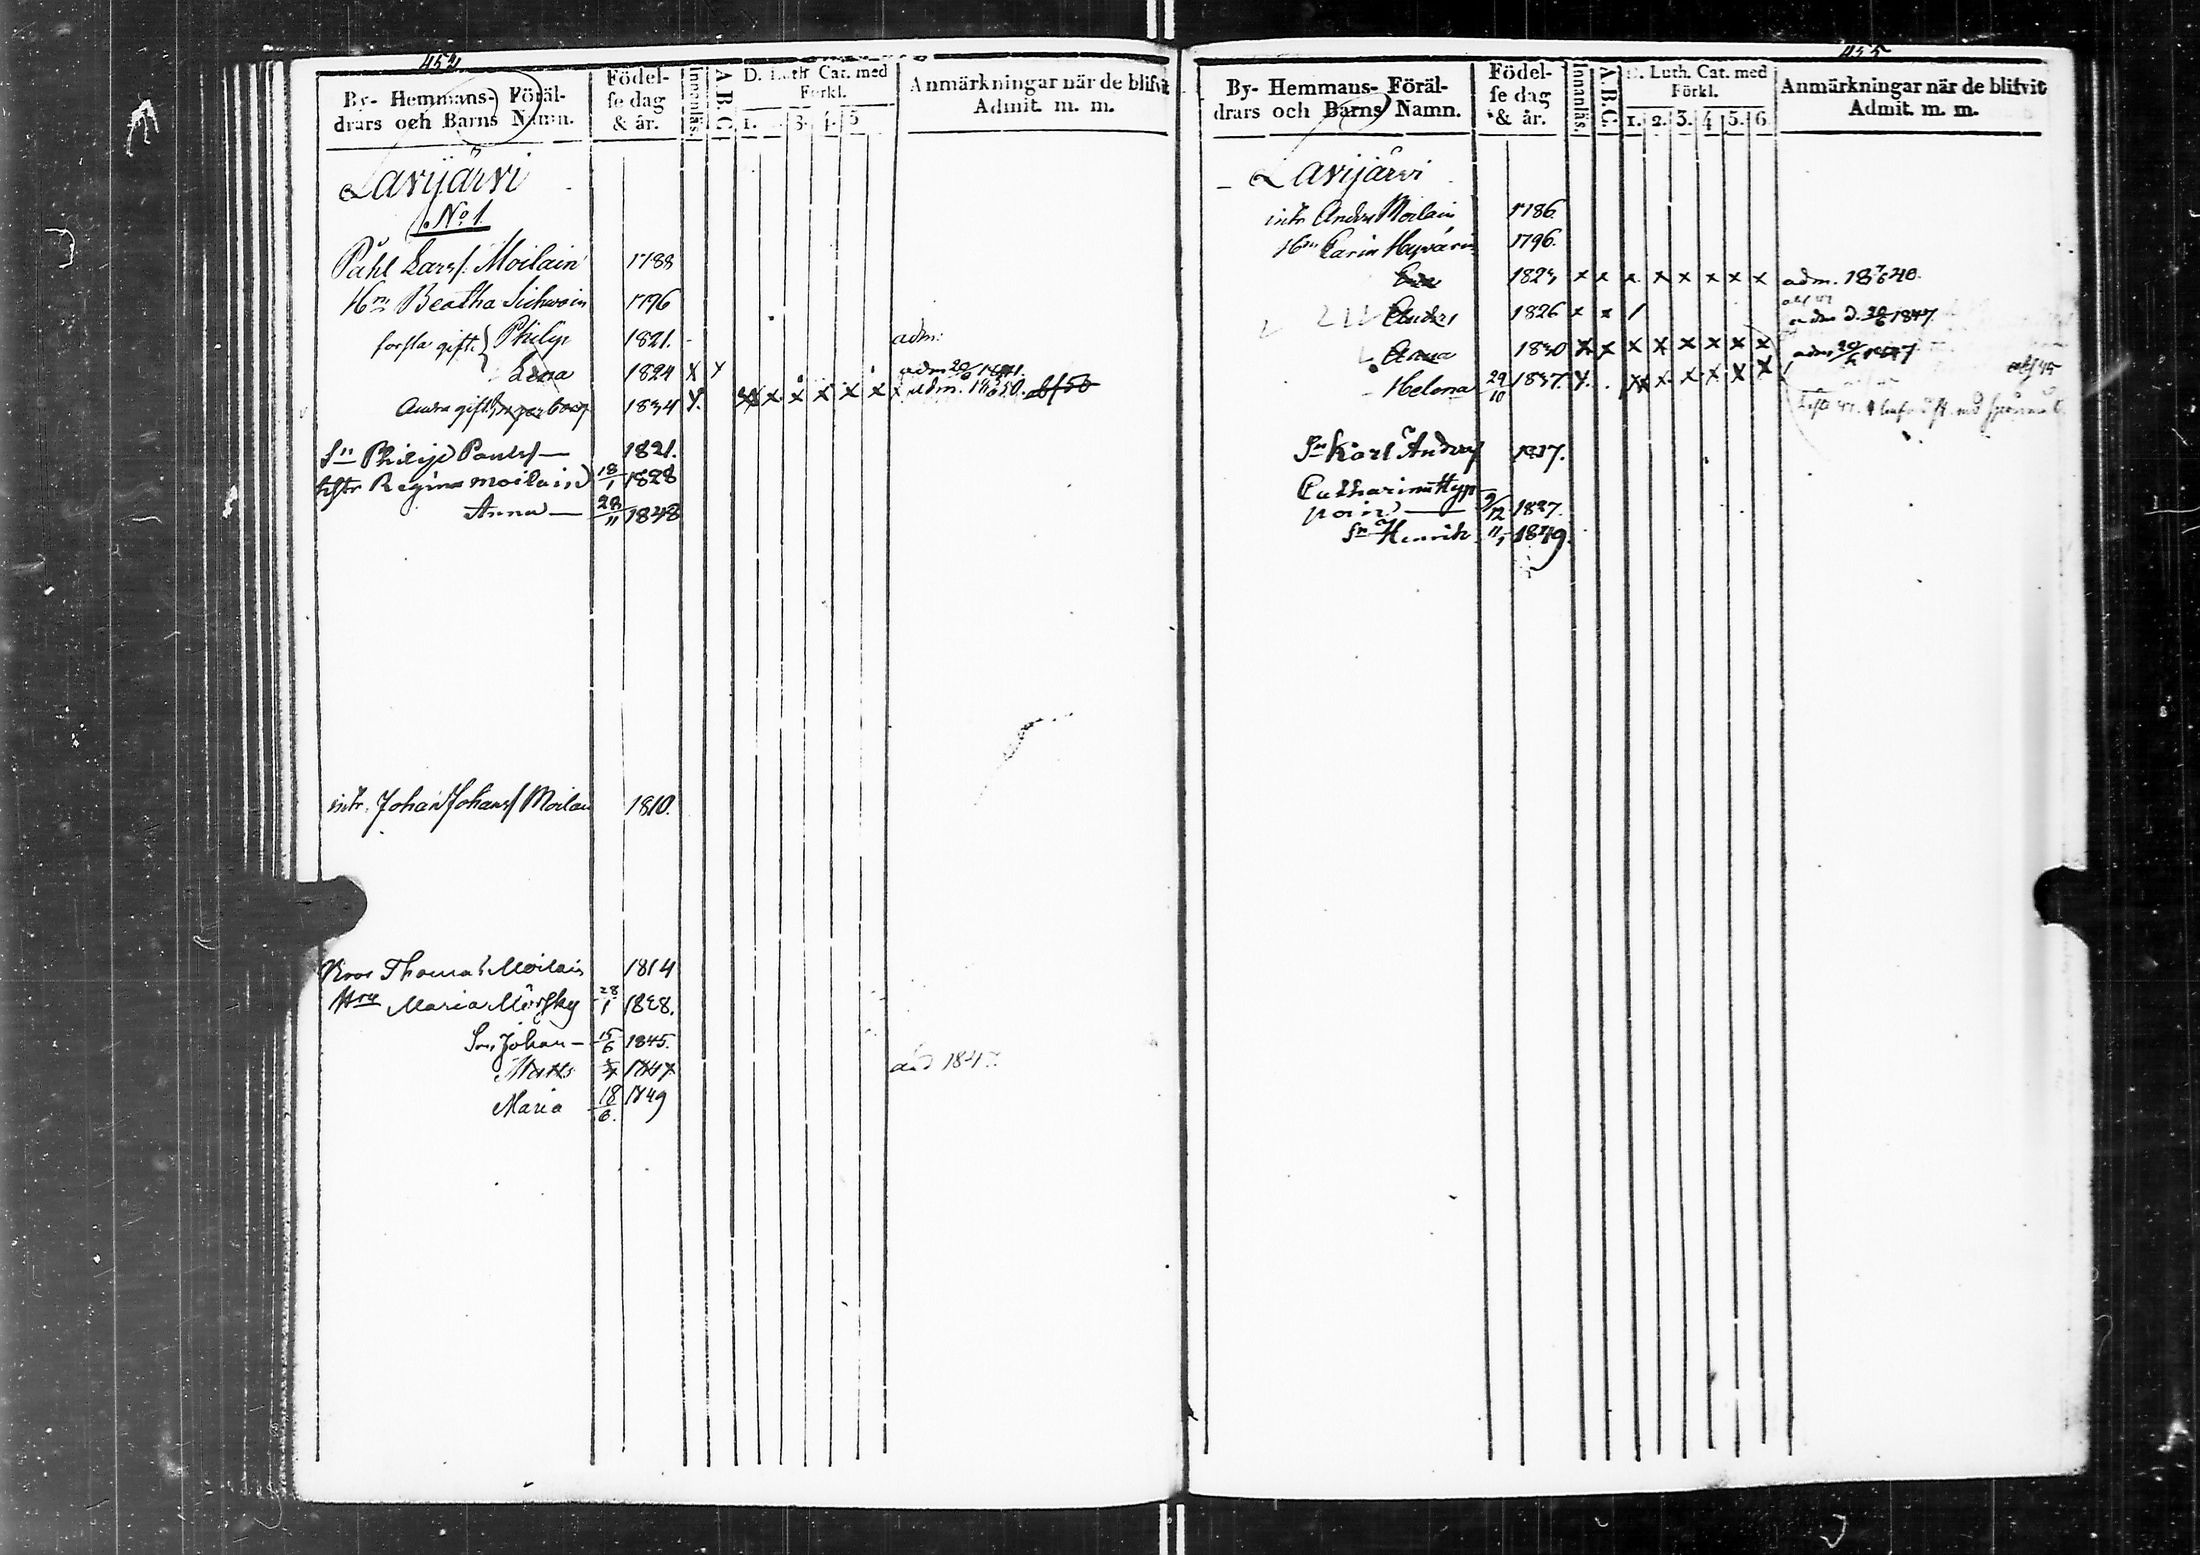 454
By- Hemmans- Föräl-
drars och Barns Namn.
Födel-
se dag
& år.
Innanläs.
A.B.C.
D. Luth. Cat. med
Förkl.
1. 3. 4. 5
Anmärkningar när de blifvit
Admit. m. m.
Lavijärvi
No 1
Påhl Larss. Moilain 1788
Hru Beatha Sichvoin 1796
första gift. Philip 1821. adm.
Lena 1824 x x adm 20/6 1841.
Andra gift. 1834 x. x x x x x x adm. 1850. abs 50
Sn Philip Paulss 1821.
hstr Regina Moilain 18/1 1828
Anna 28/11 1848
intr. Johan Johanss Moilan 1810.
Thomas Moilain 1814
Hru Maria Mörsky 28/1 1828.
Son Johan 15/6 1845.
Matts 1847 död 1847.
Maria 18/6. 1849
455
By- Hemmans- Föräl-
drars och Barns Namn.
Födel-
se dag
& år.
Innanläs.
A.B.C.
D. Luth. Cat. med
Förkl.
1. 2. 3. 4 5. 6
Anmärkningar när de blifvit
Admit. m. m.
Lavijärvi
intr Anders Moilain 1786
Hru Carin Hyvärin 1796.
Eva 1823 x x x x x x x x adm. 1840.
Anders 1826 x x / adm d. 20/6 1847
Anna 1830 x x x x x x x x adm 20/6 1847
Helena 29/10 1837 x. x x x x x x abs 45
Sn Karl Anderss 1837.
Catharina Hyp-
poin 9/12 1827.
Sn Henrik 11/1 1849.